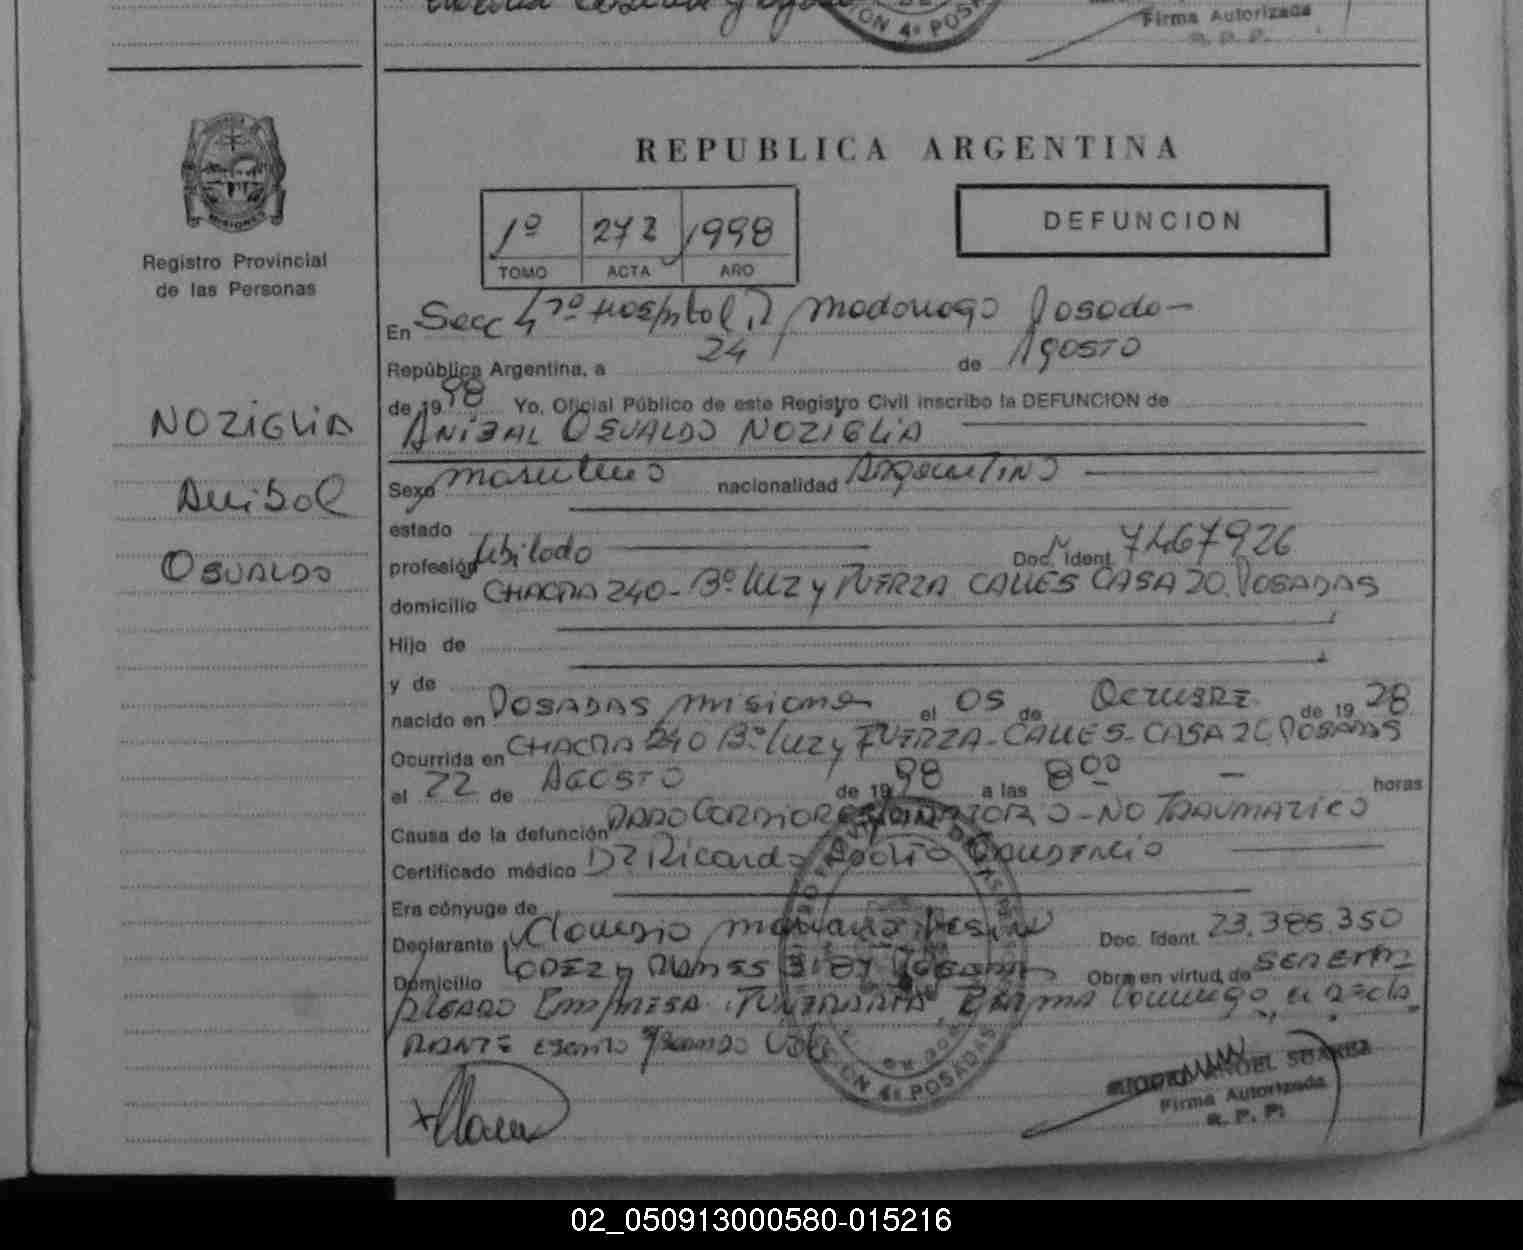 Firma Autorizada
R. P. P.
ON 4ª POSA
REPUBLICA ARGENTINA
DEFUNCION
1º 272 1998
TOMO ACTA AÑO
Registro Provincial
de las Personas
NOZIGLIA
Anibal
OSVALDO
En Secc 4º Hospital R Madariaga Posadas
República Argentina, a 24 de Agosto
de 1998 Yo, Oficial Público de este Registro Civil inscribo la DEFUNCION de
ANIBAL OSVALDO NOZIGLIA
Sexo masculino nacionalidad Argentino
estado
profesión Jubilado Doc. Ident. 7467926
domicilio CHACRA 240 - Bº LUZ y FUERZA CALLE 5 CASA 20 POSADAS
Hijo de
y de
nacido en POSADAS misiones el 05 de OCTUBRE de 1928
Ocurrida en CHACRA 240 Bº LUZ y FUERZA - CALLE 5 - CASA 20 POSADAS
el 22 de AGOSTO de 1998 a las 8 00 horas
Causa de la defunción PARO CARDIORESPIRATORIO - NO TRAUMATICO
Certificado médico Dr Ricardo Adolfo
Era cónyuge de
Declarante Claudio mariano Doc. Ident. 23.385.350
Domicilio LOPEZ y PLANES Posadas Obra en virtud de SER EM
PLEADO EMPRESA FUNERARIA
4ª POSADAS
Firma Autorizada
R. P. P.
02_050913000580-015216